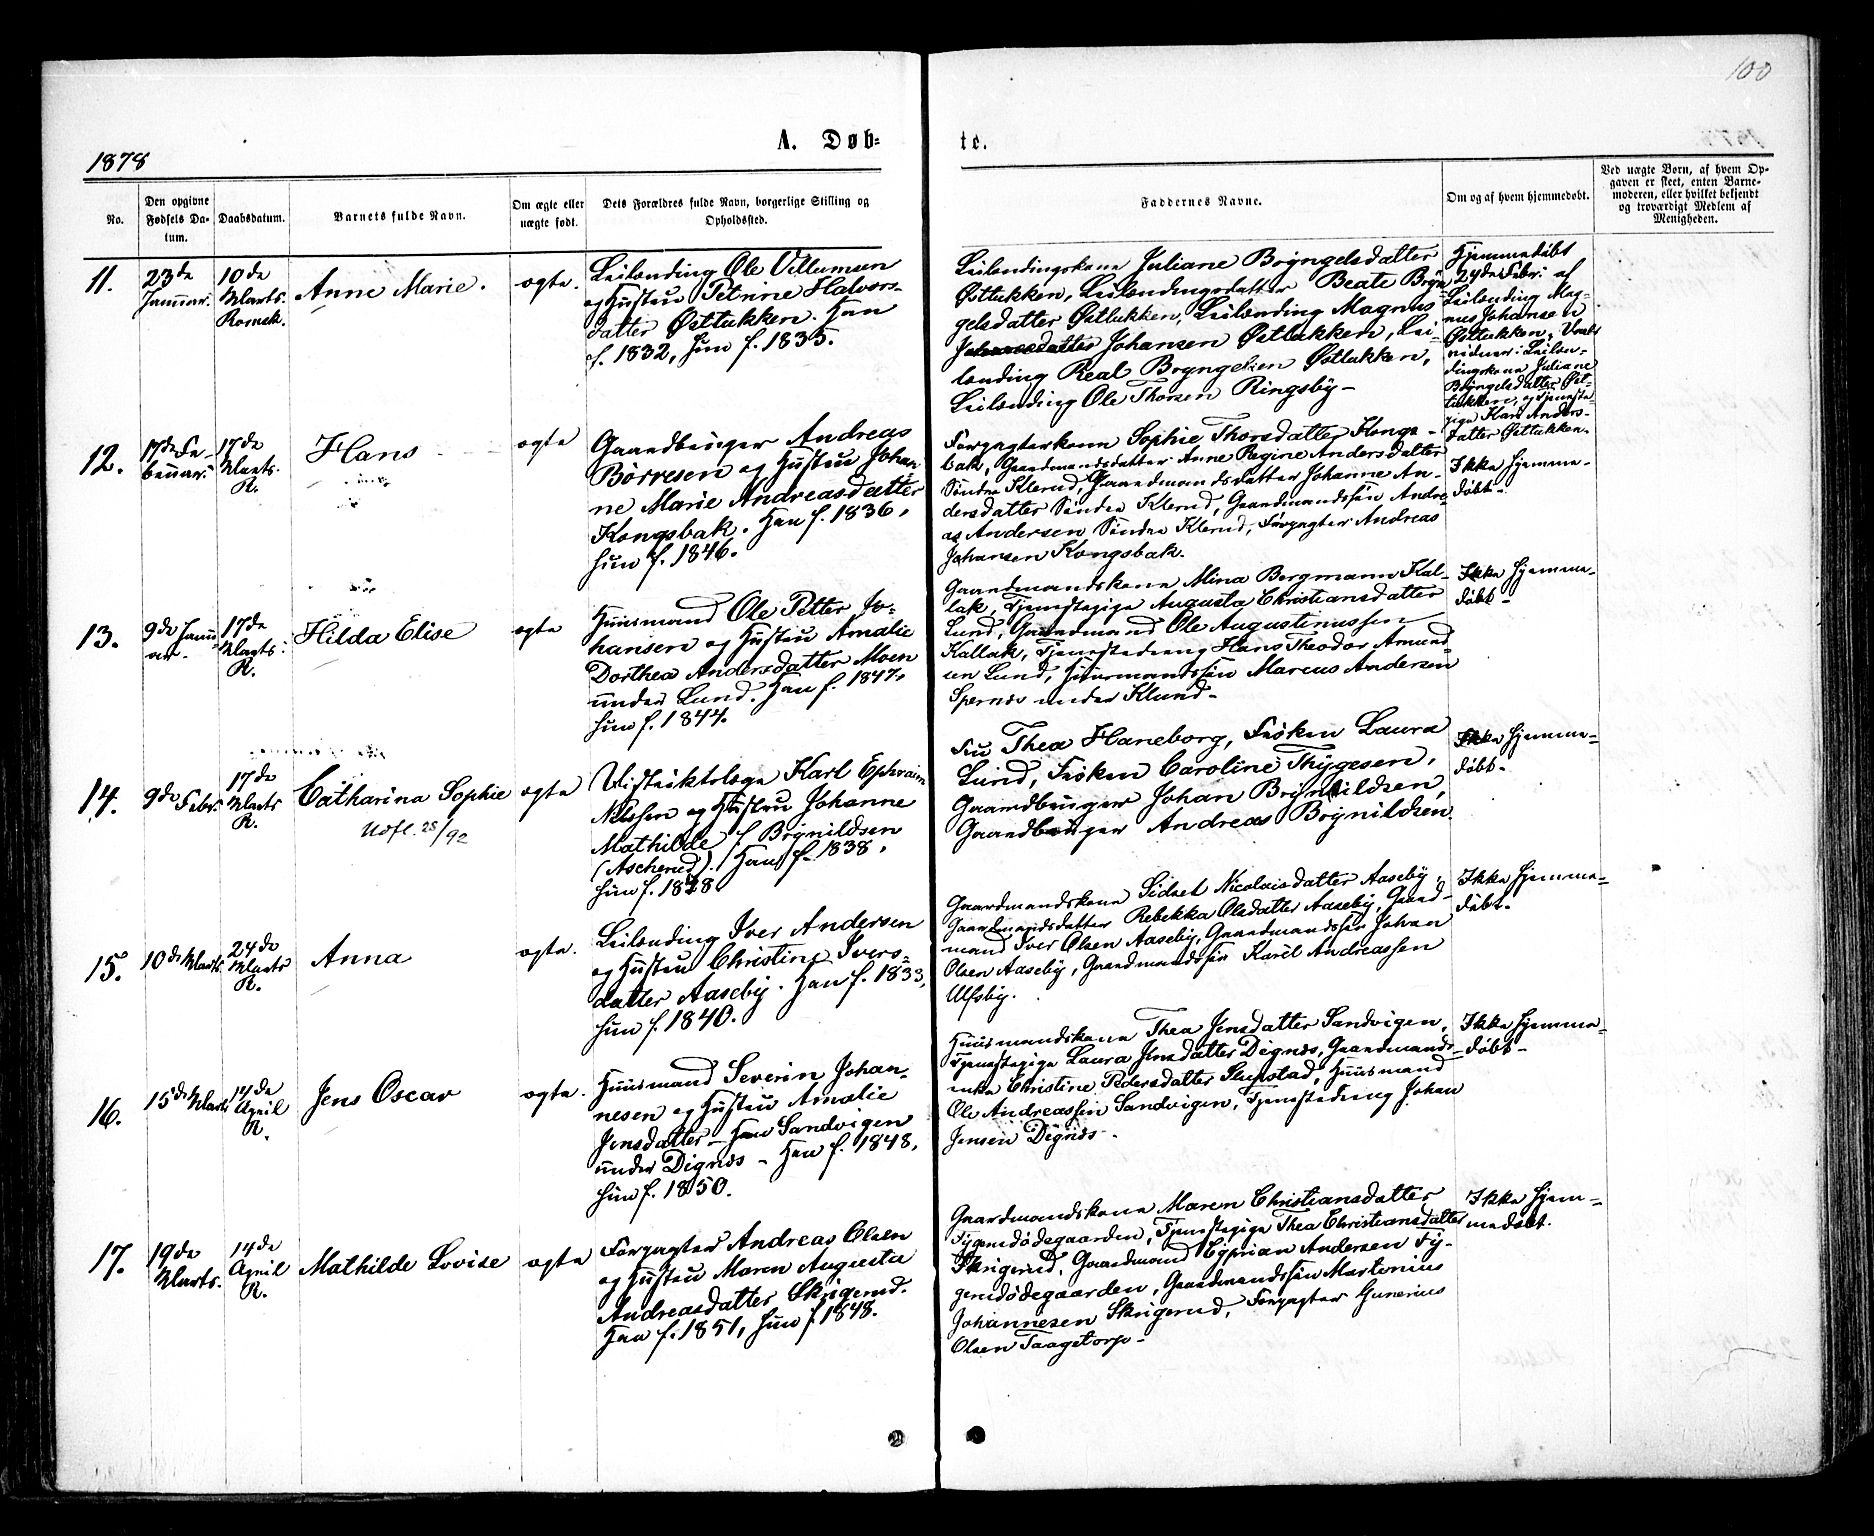 100
1878
A. Døb-
te.
No.
Den opgivne Fødsels Da-
tum.
Daabsdatum.
Barnets fulde Navn.
Om ægte eller
uægte født.
Dets Forældres fulde Navn, borgerlige Stilling og
Opholdssted.
Faddernes Navne.
Om og af hvem hjemmedøbt.
Ved uægte Børn, af hvem Op-
gaven er skeet, enten Barne-
moderen, eller hvilket bekjendt
og troværdigt Medlem af
Menigheden.
11.
23de
Januar.
10de
Marts.
Romsk.
Anne Marie.
ægte.
Leilænding Ole Villumsen
og Hustru Petrine Halvors-
datter Østlukken. Han
f. 1832, hun f. 1835.
Leilændingskone Juliane Bryngelsdatter
Østlukken, Leilændingsdatter Beate Bryn-
gelsdatter Østlukken, Leilænding Magnus
Johansen Østlukken, Lei-
lænding Real Bryngelsen Østlukken,
Leilænding Ole Thorsen Ringsby-
Hjemmedøbt
Febr: af
Leilænding Mag-
nus Johansen
Østlukken.
vidner: Leilæn-
dingskone Juliane
Bryngelsdatter Øst-
lukken, og Tjeneste-
pige Kari Anders-
datter Østlukken.
12.
17de Fe-
bruar.
17de
Marts.
R.
Hans
ægte
Gaardbruger Andreas
Børresen og Hustru Johan-
ne Marie Andreasdatter
Kongsbak. Han f. 1836,
hun f. 1846.
Forpagterkone Sophie Thorsdatter Kongs-
bak, Gaardmandsdatter Anne Regine Andersdatter
Søndre Klerud, Gaardmandsdatter Johanne An-
dersdatter Søndre Klerud, Gaardmandssøn Andre-
as Andersen Søndre Klerud, Forpagter Andreas
Johansen Kongsbak.
Ikke hjemme-
døbt-
13.
9de Janu-
ar-
17de
Marts.
R.
Hilda Elise
ægte
Huusmand Ole Petter Jo-
hansen og Hustru Amalie
Dorthea Andersdatter Moen
under Lund. Han f. 1847,
hun f. 1844.
Gaardmandskone Mina Bergmann Kal-
lak, Tjenestepige Augusta Christiansdatter
Lund, Gaardmand Ole Augustinussen
Kallak, Tjenestedreng Hans Theodor Amund-
sen Lund, Huusmandssøn Marcus Andersen
Spernes under Klund-
Ikke hjemme-
døbt-
14.
9de Febr.
17de
Marts
R.
Catharina Sophie
Udfl. 28/92
ægte
Distriktslæge Karl Ephraim
Nilssen og Hustru Johanne
Mathilde f. Brynildsen
(Ascherud). Han f. 1838,
hun f. 1848
Fru Thea Haneborg, Frøken Laura
Lund, Frøken Caroline Thygesen,
Gaardbruger Johan Brynildsen,
Gaardbruger Andreas Brynildsen.
Ikke hjemme-
døbt-
15.
10de Marts.
24de
Marts
R.
Anna
ægte.
Leilænding Iver Andersen
og Hustru Christine Ivers-
datter Aaseby. Han f. 1833,
hun f. 1840.
Gaardmandskone Sidset Nicolaisdatter Aaseby,
Gaardmandsdatter Rebekka Olsdatter Aaseby, Gaard-
mand Iver Olsen Aaseby, Gaardmandssøn Johan
Olsen Aaseby, Gaardmandssøn Karel Andreassen
Ulfsby.
Ikke hjemme-
døbt-
16.
15de Marts
14de
April
R.
Jens Oscar
ægte.
Huusmand Severin Johan-
nesen og Hustru Amalie
Jensdatter - Sandvigen
under Dignæs - Han f. 1848,
hun f. 1850.
Huusmandskone Thea Jensdatter Sandvigen,
Tjenestepige Laura Jensdatter Dignæs, Gaardmands-
enke Christine Pedersdatter Slupstad, Huusmand
Ole Andreassen Sandvigen, Tjenestedreng Johan
Jensen Dignæs-
Ikke hjemme-
døbt-
17.
19de
Marts.
14de
April
R.
Mathilde Lovise
ægte
Forpagter Andreas Olsen
og Hustru Maren Augusta
Andreasdatter Skrigerud.
Han f. 1851, hun f. 1848.
Gaardmandskone Maren Christiansdatter
Tygensødegaarden, Tjenestepige Thea Christiansdatter
Skrigerud, Gaardmand Cyprian Andersen Ty-
gensødegaarden, Gaardmandssøn Martinius
Johannesen Skrigerud, Forpagter Gunerius
Olsen Taagetorp-
Ikke hjem-
medøbt.